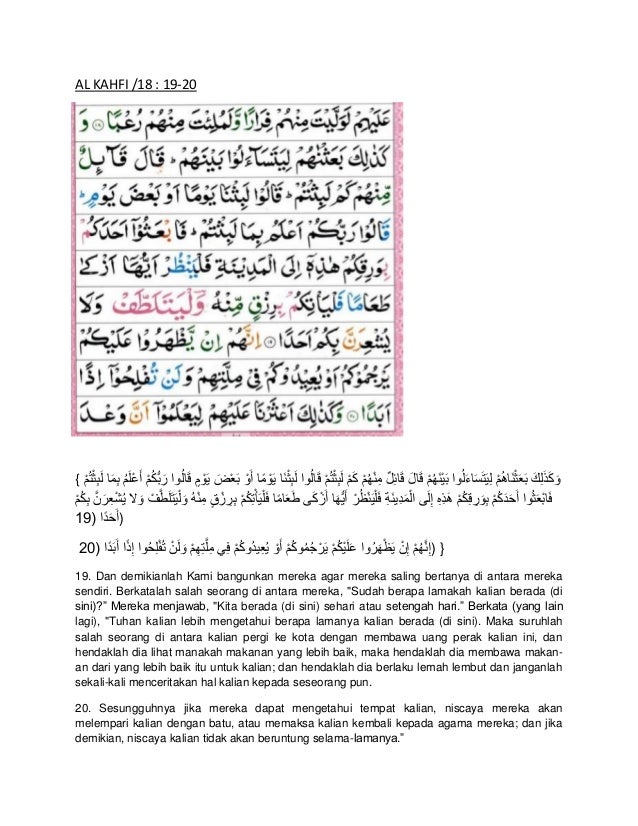 AL KAHFI /18 : 19-20
عَلَيْهِمْ لَوَلَّيْتَ مِنْهُمْ فِرَارًا وَّلَمُلِئْتَ مِنْهُمْ رُعْبًا ﴿۱۸﴾ وَ
كَذٰلِكَ بَعَثْنٰهُمْ لِيَتَسَآءَلُوْا بَيْنَهُمْ ؕ قَالَ قَآىِٕلٌ
مِّنْهُمْ كَمْ لَبِثْتُمْ ؕ قَالُوْا لَبِثْنَا يَوْمًا اَوْ بَعْضَ يَوْمٍ ؕ
قَالُوْا رَبُّكُمْ اَعْلَمُ بِمَا لَبِثْتُمْ ؕ فَابْعَثُوْۤا اَحَدَكُمْ
بِوَرِقِكُمْ هٰذِهٖۤ اِلَى الْمَدِيْنَةِ فَلْيَنْظُرْ اَيُّهَاۤ اَزْكٰى
طَعَامًا فَلْيَاْتِكُمْ بِرِزْقٍ مِّنْهُ وَلْيَتَلَطَّفْ وَلَا
يُشْعِرَنَّ بِكُمْ اَحَدًا ﴿۱۹﴾ اِنَّهُمْ اِنْ يَّظْهَرُوْا عَلَيْكُمْ
يَرْجُمُوْكُمْ اَوْ يُعِيْدُوْكُمْ فِيْ مِلَّتِهِمْ وَلَنْ تُفْلِحُوْۤا اِذًا
اَبَدًا ﴿۲۰﴾ وَكَذٰلِكَ اَعْثَرْنَا عَلَيْهِمْ لِيَعْلَمُوْۤا اَنَّ وَعْدَ
وَكَذَلِكَ بَعَثْنَاهُمْ لِيَتَسَاءَلُوا بَيْنَهُمْ قَالَ قَائِلٌ مِنْهُمْ كَمْ لَبِثْتُمْ قَالُوا لَبِثْنَا يَوْمًا أَوْ بَعْضَ يَوْمٍ قَالُوا رَبُّكُمْ أَعْلَمُ بِمَا لَبِثْتُمْ {
فَابْعَثُوا أَحَدَكُمْ بِوَرِقِكُمْ هَذِهِ إِلَى الْمَدِينَةِ فَلْيَنْظُرْ أَيُّهَا أَزْكَى طَعَامًا فَلْيَأْتِكُمْ بِرِزْقٍ مِنْهُ وَلْيَتَلَطَّفْ وَلا يُشْعِرَنَّ بِكُمْ
أَحَدًا (19)
إِنَّهُمْ إِنْ يَظْهَرُوا عَلَيْكُمْ يَرْجُمُوكُمْ أَوْ يُعِيدُوكُمْ فِي مِلَّتِهِمْ وَلَنْ تُفْلِحُوا إِذًا أَبَدًا (20) }
19. Dan demikianlah Kami bangunkan mereka agar mereka saling bertanya di antara mereka
sendiri. Berkatalah salah seorang di antara mereka, "Sudah berapa lamakah kalian berada (di
sini)?” Mereka menjawab, "Kita berada (di sini) sehari atau setengah hari.” Berkata (yang lain
lagi), "Tuhan kalian lebih mengetahui berapa lamanya kalian berada (di sini). Maka suruhlah
salah seorang di antara kalian pergi ke kota dengan membawa uang perak kalian ini, dan
hendaklah dia lihat manakah makanan yang lebih baik, maka hendaklah dia membawa makan-
an dari yang lebih baik itu untuk kalian; dan hendaklah dia berlaku lemah lembut dan janganlah
sekali-kali menceritakan hal kalian kepada seseorang pun.
20. Sesungguhnya jika mereka dapat mengetahui tempat kalian, niscaya mereka akan
melempari kalian dengan batu, atau memaksa kalian kembali kepada agama mereka; dan jika
demikian, niscaya kalian tidak akan beruntung selama-lamanya.”